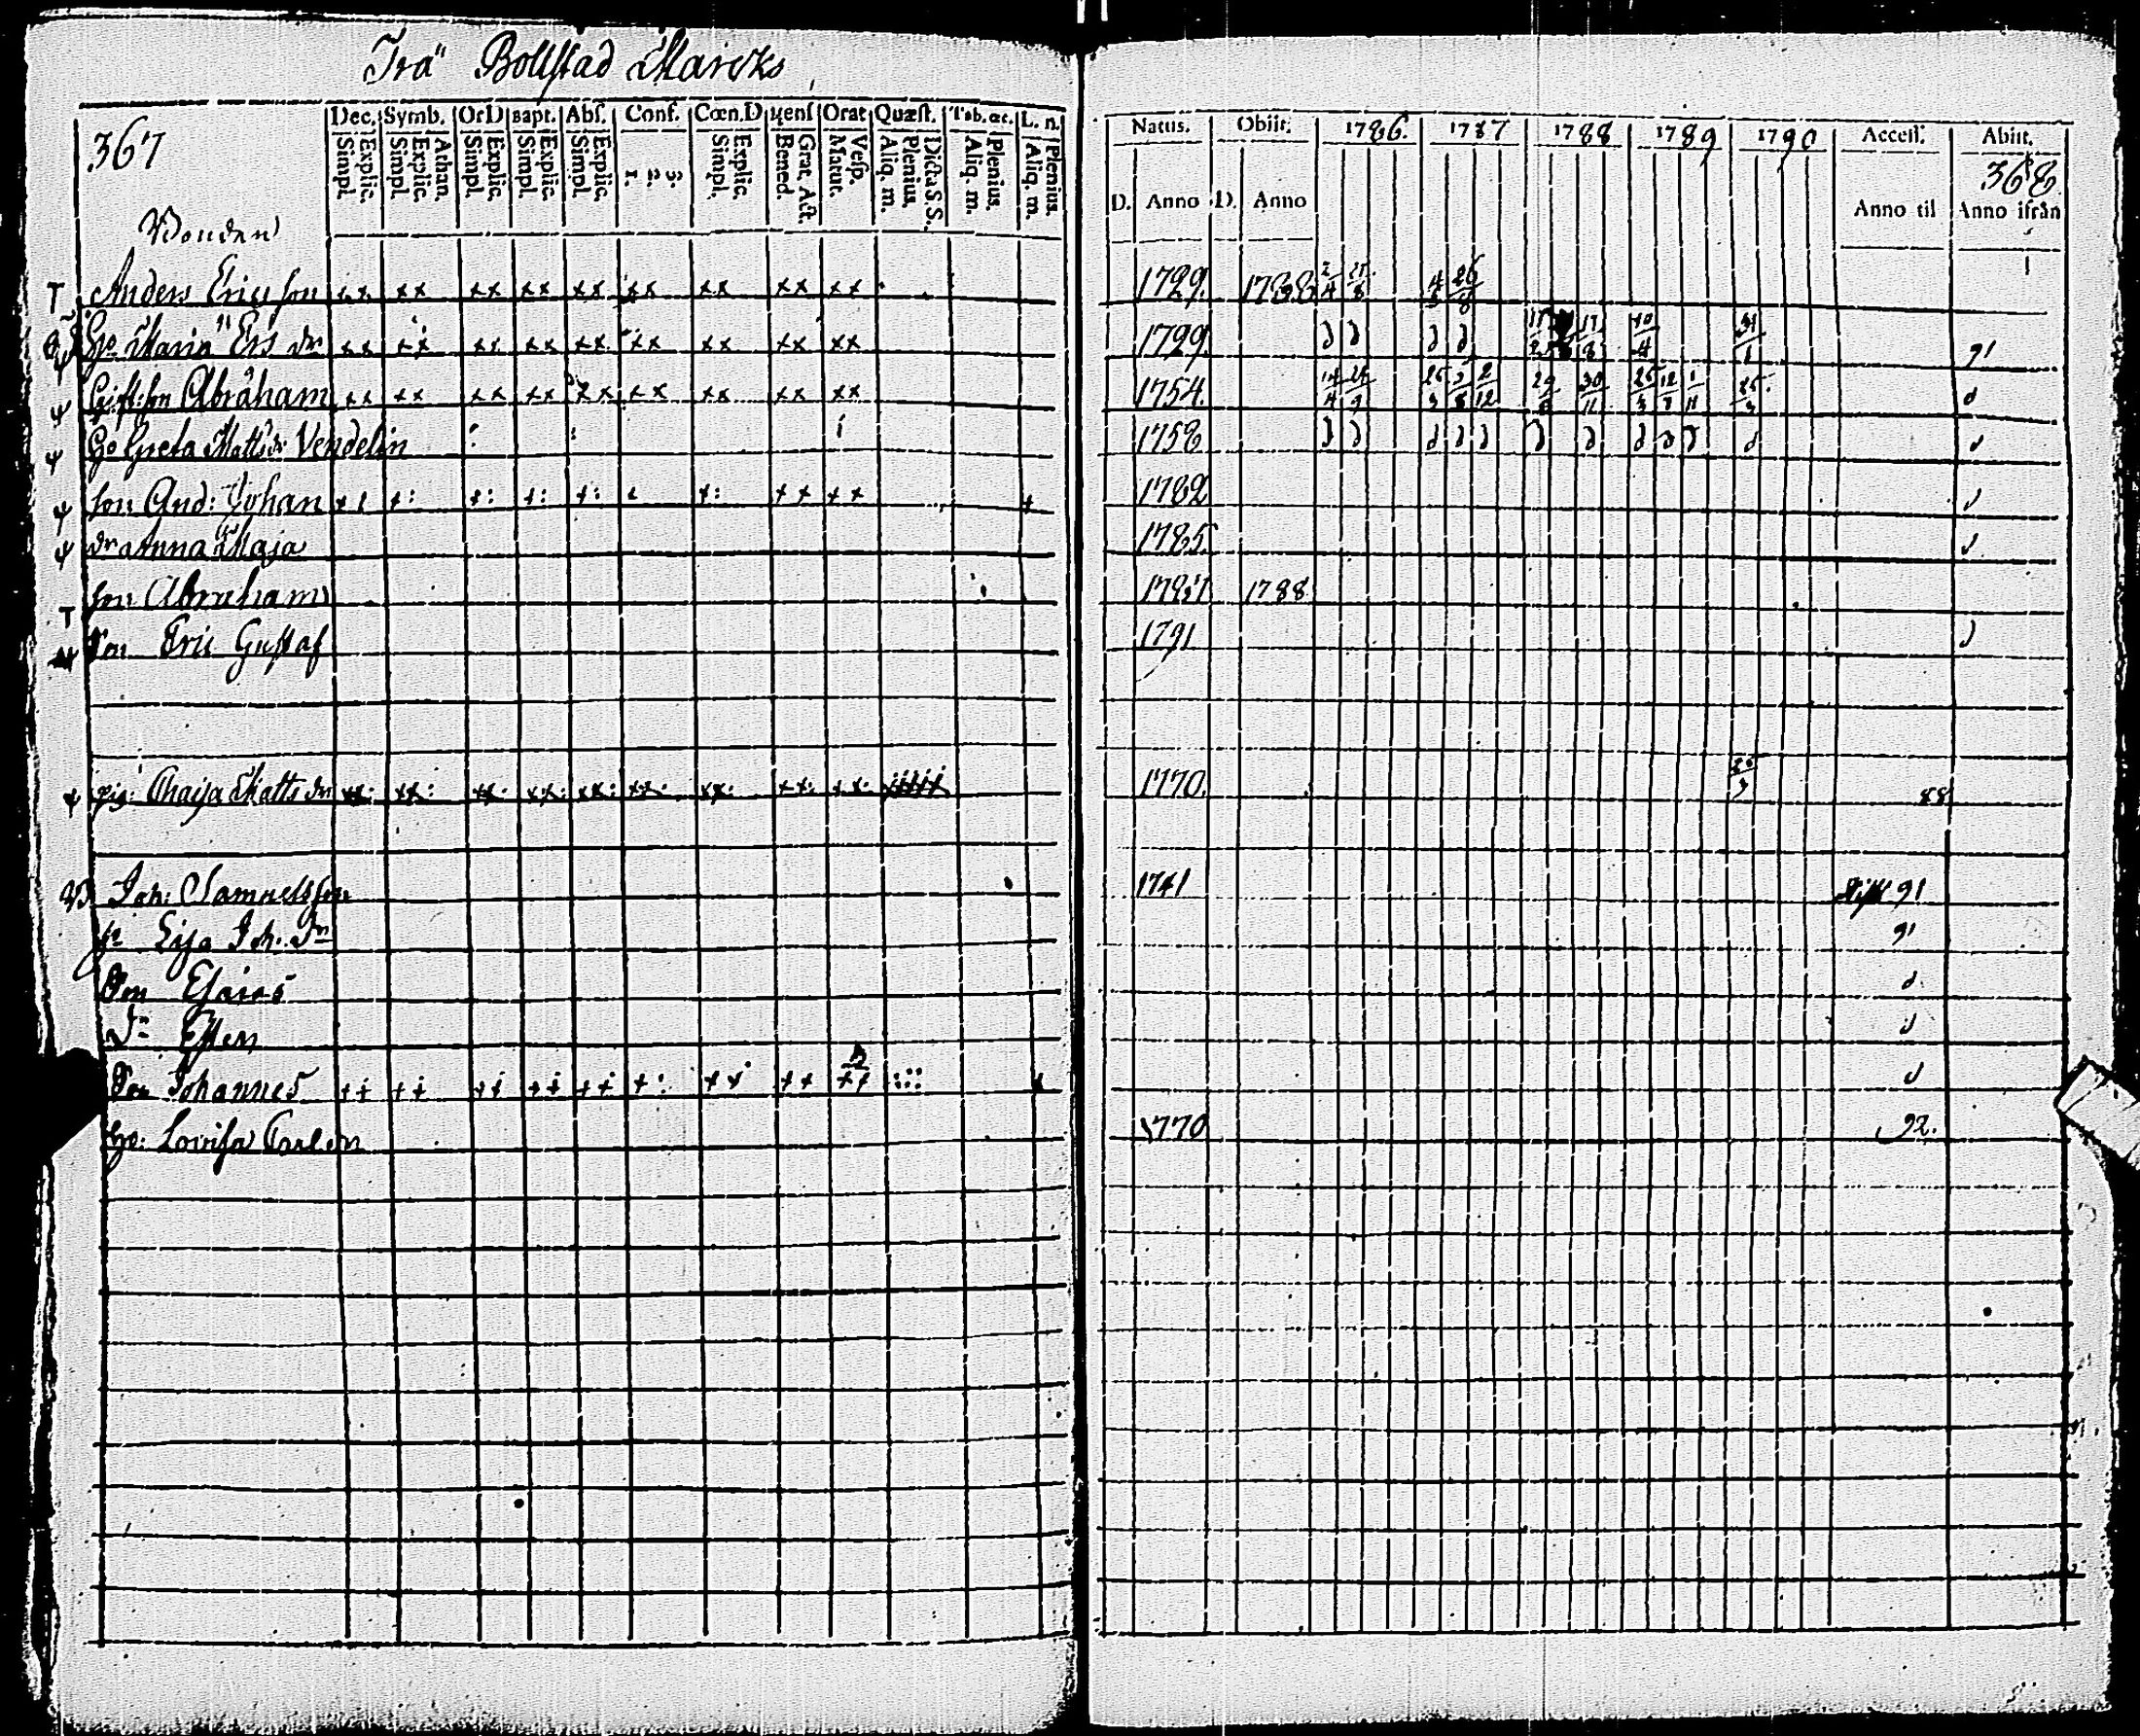 Trä" Bollstad Marcks
367
Dec. Symb. Or D Bapt. Abs. Conf. Cœn.D Mens Orat Quæst. Tab. œc. L. n.
Explic. Simpl. Athan. Explic. Simpl. Explic. Simpl. Explic. Simpl. Explic. Simpl. 3. 2. 1. Explic. Simpl. Grat. Act. Bened. Vesp. Matut. Dicta S.S. Plenius. Aliq. m. Plenius. Aliq. m. Plenius. Aliq. m.
Natus. Obiit. 1786. 1787 1788 1789 1790 Access. Abiit.
368
D. Anno D. Anno Anno til Anno ifrån
Bonden
Anders Ericsson 1729. 1788 2/4 27/8 4/3 26/8
Maria Ers dr 1729 91
Gift: son Abraham 1754. d
Greta Matts dr Vendelin 1758 d
son And: Johan 1782 d
dr Anna Maja 1785 d
son Abraham 1787 1788
Son Eric Gustaf 1791 d
pig: Chaija Matts dr 1770. 25/3 88
Joh: Samuelsson 1741 91
Lisa Joh. Dr 91
Son Esaias d
Dr Ester d
Son Johannes d
Lovisa Carlsdr 1770 92.